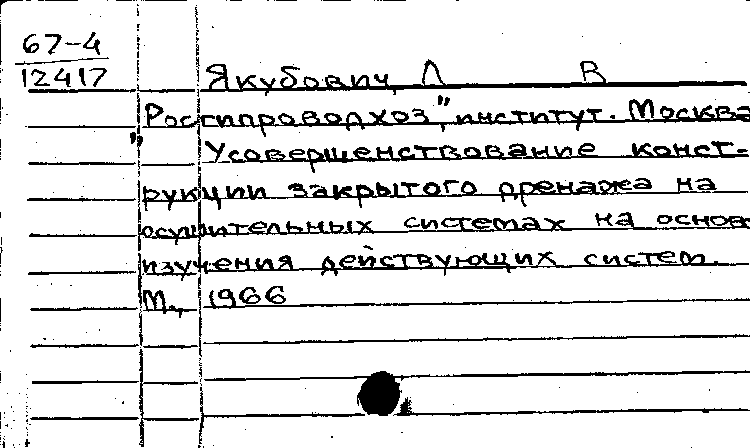 67-4
12417
Якубович, Л В
"Росгипроводхоз", институт. Москва
Усовершенствование конст-
рукции закрытого дренажа на
осушительных системах на основ
изучения действующих систем.
М., 1966